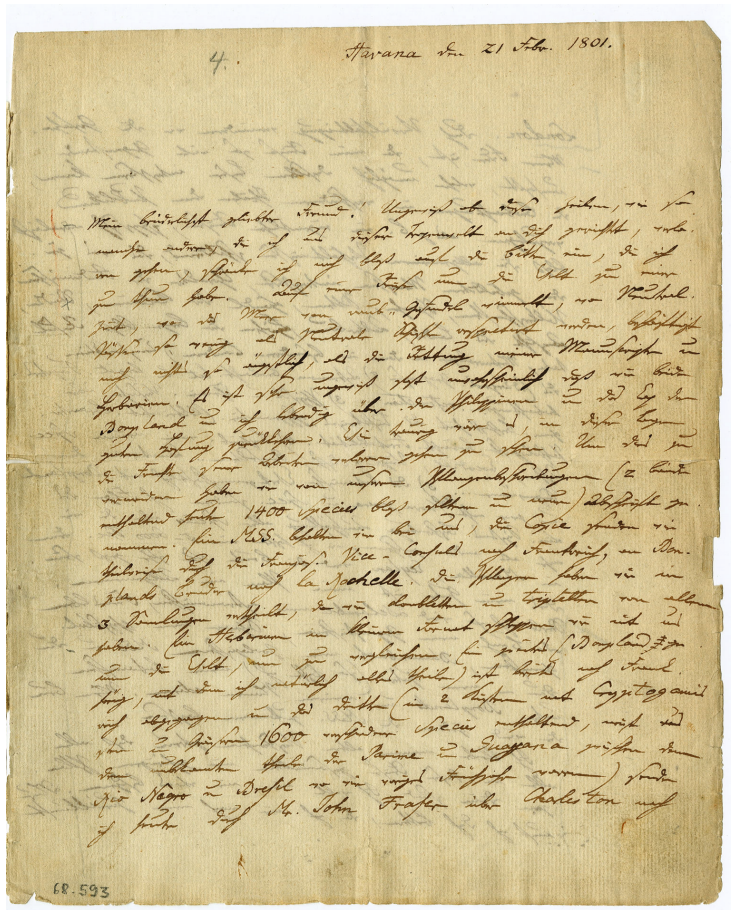 4.
Havana den 21 Febr. 1801.
Mein brüderlichst geliebter Freund! Ungewiß ob diese Zeilen, wie so
manche andere, die ich aus dieser Tropenwelt an dich gerichtet, verlo-
ren gehen, schränke ich mich bloß auf die Bitte ein, die ich
zu thun habe. Auf einer Reise um die Welt zu einer
Zeit, wo das Meer von Raub-Gesindel wimmelt, wo Neutral.
Pässe so wenig als Neutrale Schiffe respectirt werden, beschäftigt
mich nichts so ängstlich, als die Rettung meiner Manuscripte u
Herbarien. Es ist sehr ungewiß fast unwahrscheinlich daß wir beide
Bonpland u ich lebendig über die Philippinen u das Cap der
guten Hofnung zurückkehren. Wie traurig wäre es, in dieser Lage
die Früchte seiner Arbeiten verloren gehen zu sehen. Um dies zu
vermeiden haben wir von unseren Pflanzenbeschreibungen (2 Bände
enthaltend heute 1400 Species bloß seltene u neue) Abschrift ge-
nommen. Ein MSS. behalten wir bei uns, die Copie senden wir
theilweise durch die Französ. Vice-Consuls nach Frankreich, an Bon-
plands Bruder nach la Rochelle. Die Pflanzen haben wir in
3 Samlungen vertheilt, da wir doubletten u tripletten von allem
haben. Ein Herbarium in kleinem Format schleppen wir mit uns
um die Welt, um zu vergleichen. Ein zweites (Bonplands,
mit dem ich natürlich alles theile) ist bereits nach Frank-
reich abgegangen u das dritte (in 2 Kisten mit Cryptogamis
u Gräsern 1600 verschiedene Species enthaltend, meist aus
dem unbekannten Theile der Parime u Guayana zwischen dem
Rio Negro u Bresil wo wir voriges Frühjahr waren) sende
ich heute durch Mr. John Fraser über Charleston nach
68-593